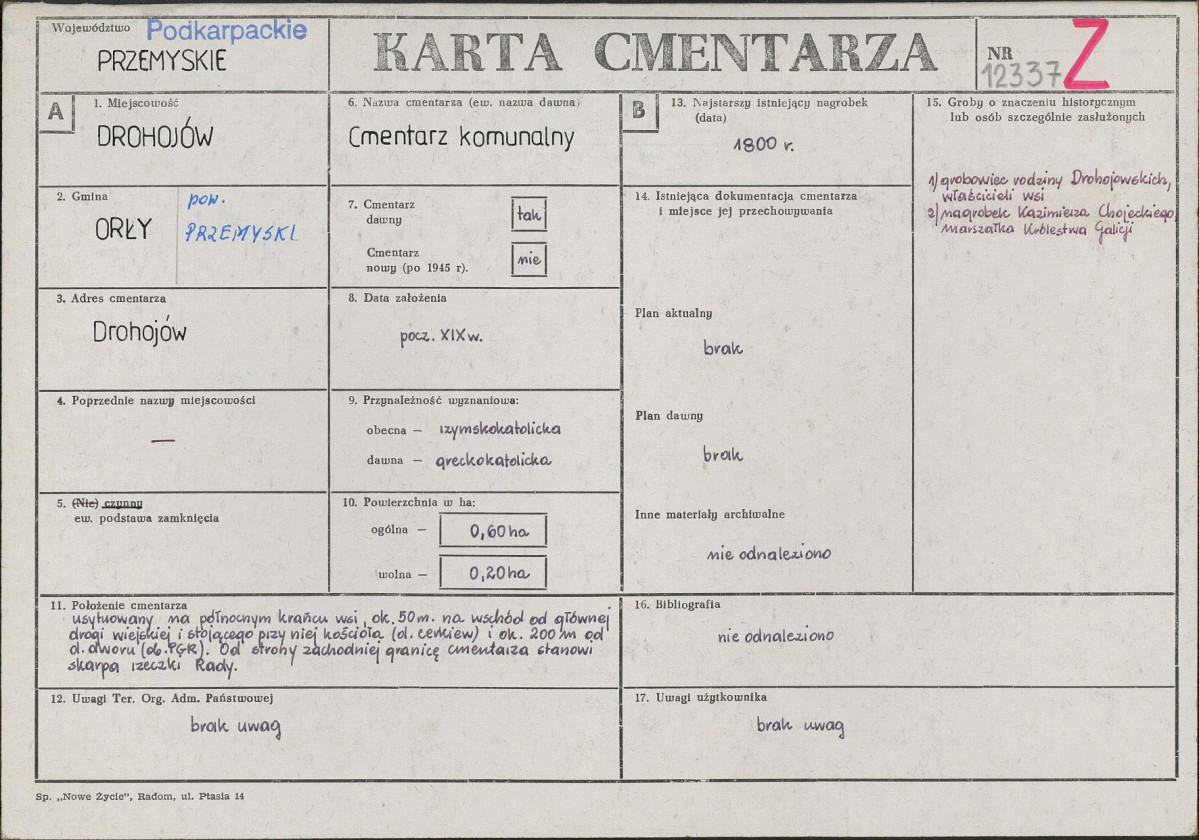 Województwo Podkarpackie
PRZEMYSKIE
KARTA CMENTARZA
NR
12337 Z
A
1. Miejscowość
DROHOJÓW
2. Gmina
ORŁY
pow.
PRZEMYSKI
3. Adres cmentarza
Drohojów
4. Poprzednie nazwy miejscowości
—
5. (Nie) czynny
ew. podstawa zamknięcia
6. Nazwa cmentarza (ew. nazwa dawna)
Cmentarz komunalny
7. Cmentarz
dawny
tak
Cmentarz
nowy (po 1945 r).
nie
8. Data założenia
pocz. XIX w.
9. Przynależność wyznaniowa:
obecna — rzymskokatolicka
dawna — greckokatolicka
10. Powierzchnia w ha:
ogólna — 0,60 ha
wolna — 0,20 ha
11. Położenie cmentarza
usytuowany na północnym krańcu wsi, ok. 50 m. na wschód od głównej
drogi wiejskiej i stojącego przy niej kościoła (d. cerkiew) i ok. 200 m od
d. dworu (ob. PGR). Od strony zachodniej granicę cmentarza stanowi
skarpa rzeczki Rady.
12. Uwagi Ter. Org. Adm. Państwowej
brak uwag
B
13. Najstarszy istniejący nagrobek
(data)
1800 r.
14. Istniejąca dokumentacja cmentarza
i miejsce jej przechowywania
Plan aktualny
brak
Plan dawny
brak
Inne materiały archiwalne
nie odnaleziono
15. Groby o znaczeniu historycznym
lub osób szczególnie zasłużonych
1) grobowiec rodziny Drohojowskich,
właścicieli wsi
2) nagrobek Kazimierza Chojeckiego
marszałka Królestwa Galicji
16. Bibliografia
nie odnaleziono
17. Uwagi użytkownika
brak uwag
Sp. „Nowe Życie", Radom, ul. Ptasia 14